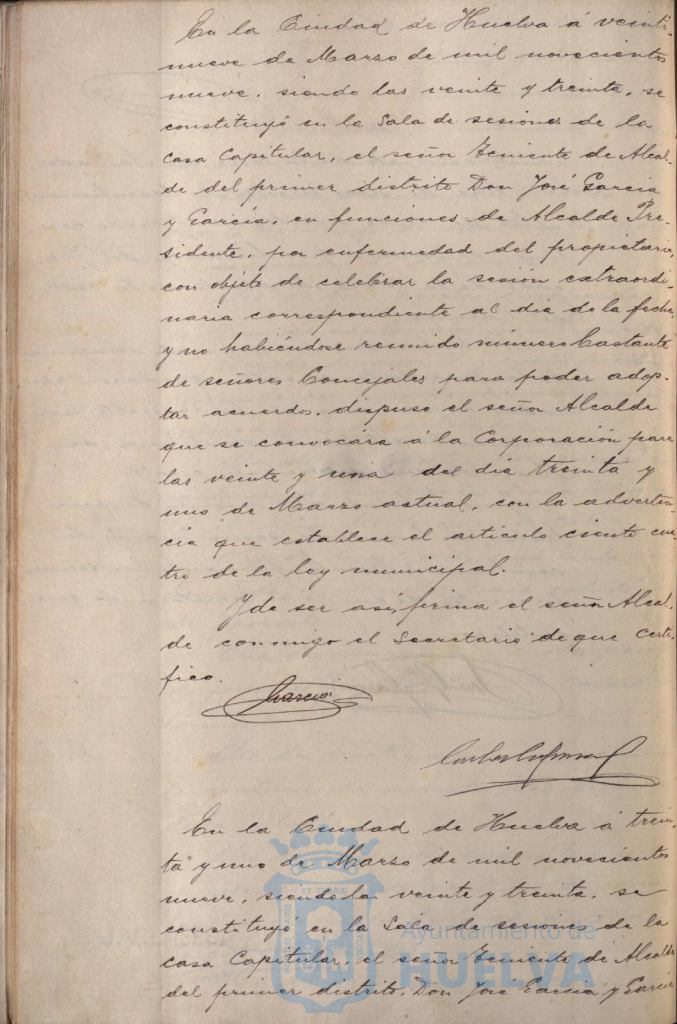 En la Ciudad de Huelva á veinti-
nueve de Marzo de mil novecientos
nueve, siendo las veinte y treinta, se
constituyó en la Sala de sesiones de la
casa Capitular, el señor Teniente de Alcal-
de del primer distrito Don José García
y García, en funciones de Alcalde Pre-
sidente, por enfermedad del propietario,
con objeto de celebrar la sesión extraordi-
naria correspondiente al dia de la fecha,
y no habiéndose reunido número bastante
de señores Concejales para poder adop-
tar acuerdos, dispuso el señor Alcalde
que se convocára á la Corporación para
las veinte y una del dia treinta y
uno de Marzo actual, con la adverten-
cia que establece el artículo ciento cua-
tro de la ley municipal.
Y de ser asi, firma el señor Alcal-
de conmigo el Secretario de que certi-
fico.
García
En la Ciudad de Huelva á trein-
ta y uno de Marzo de mil novecientos
nueve, siendo la veinte y treinta, se
constituyó en la Sala de sesiones de la
casa Capitular, el señor Teniente de Alcalde
del primer distrito, Don José García y García
Ayuntamiento de
HUELVA